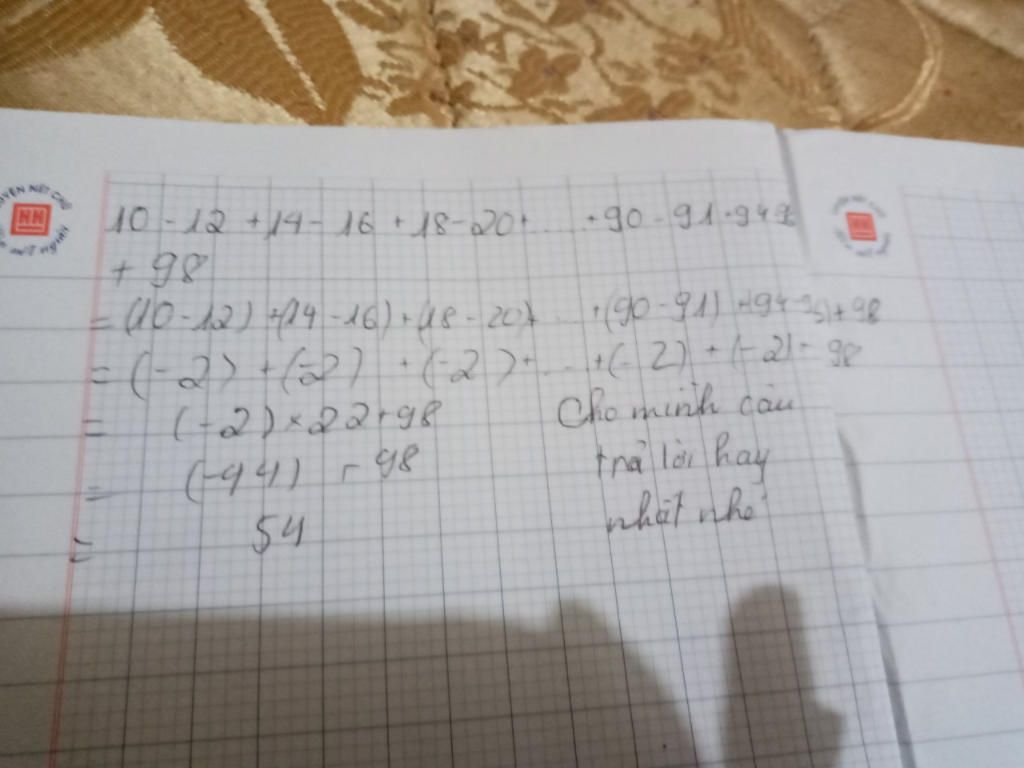 10 - 12 + 14 - 16 + 18 - 20 + ... + 90 - 91 + 94
+ 98
= (10 - 12) + (14 - 16) + (18 - 20) + ... + (90 - 91) + 94 + 98
= (-2) + (-2) + (-2) + ... + (-2) + (-2) - 98
= (-2) × 22 + 98
= (-44) - 98
= 54
Cho mình câu
trả lời hay
nhất nhé
HH